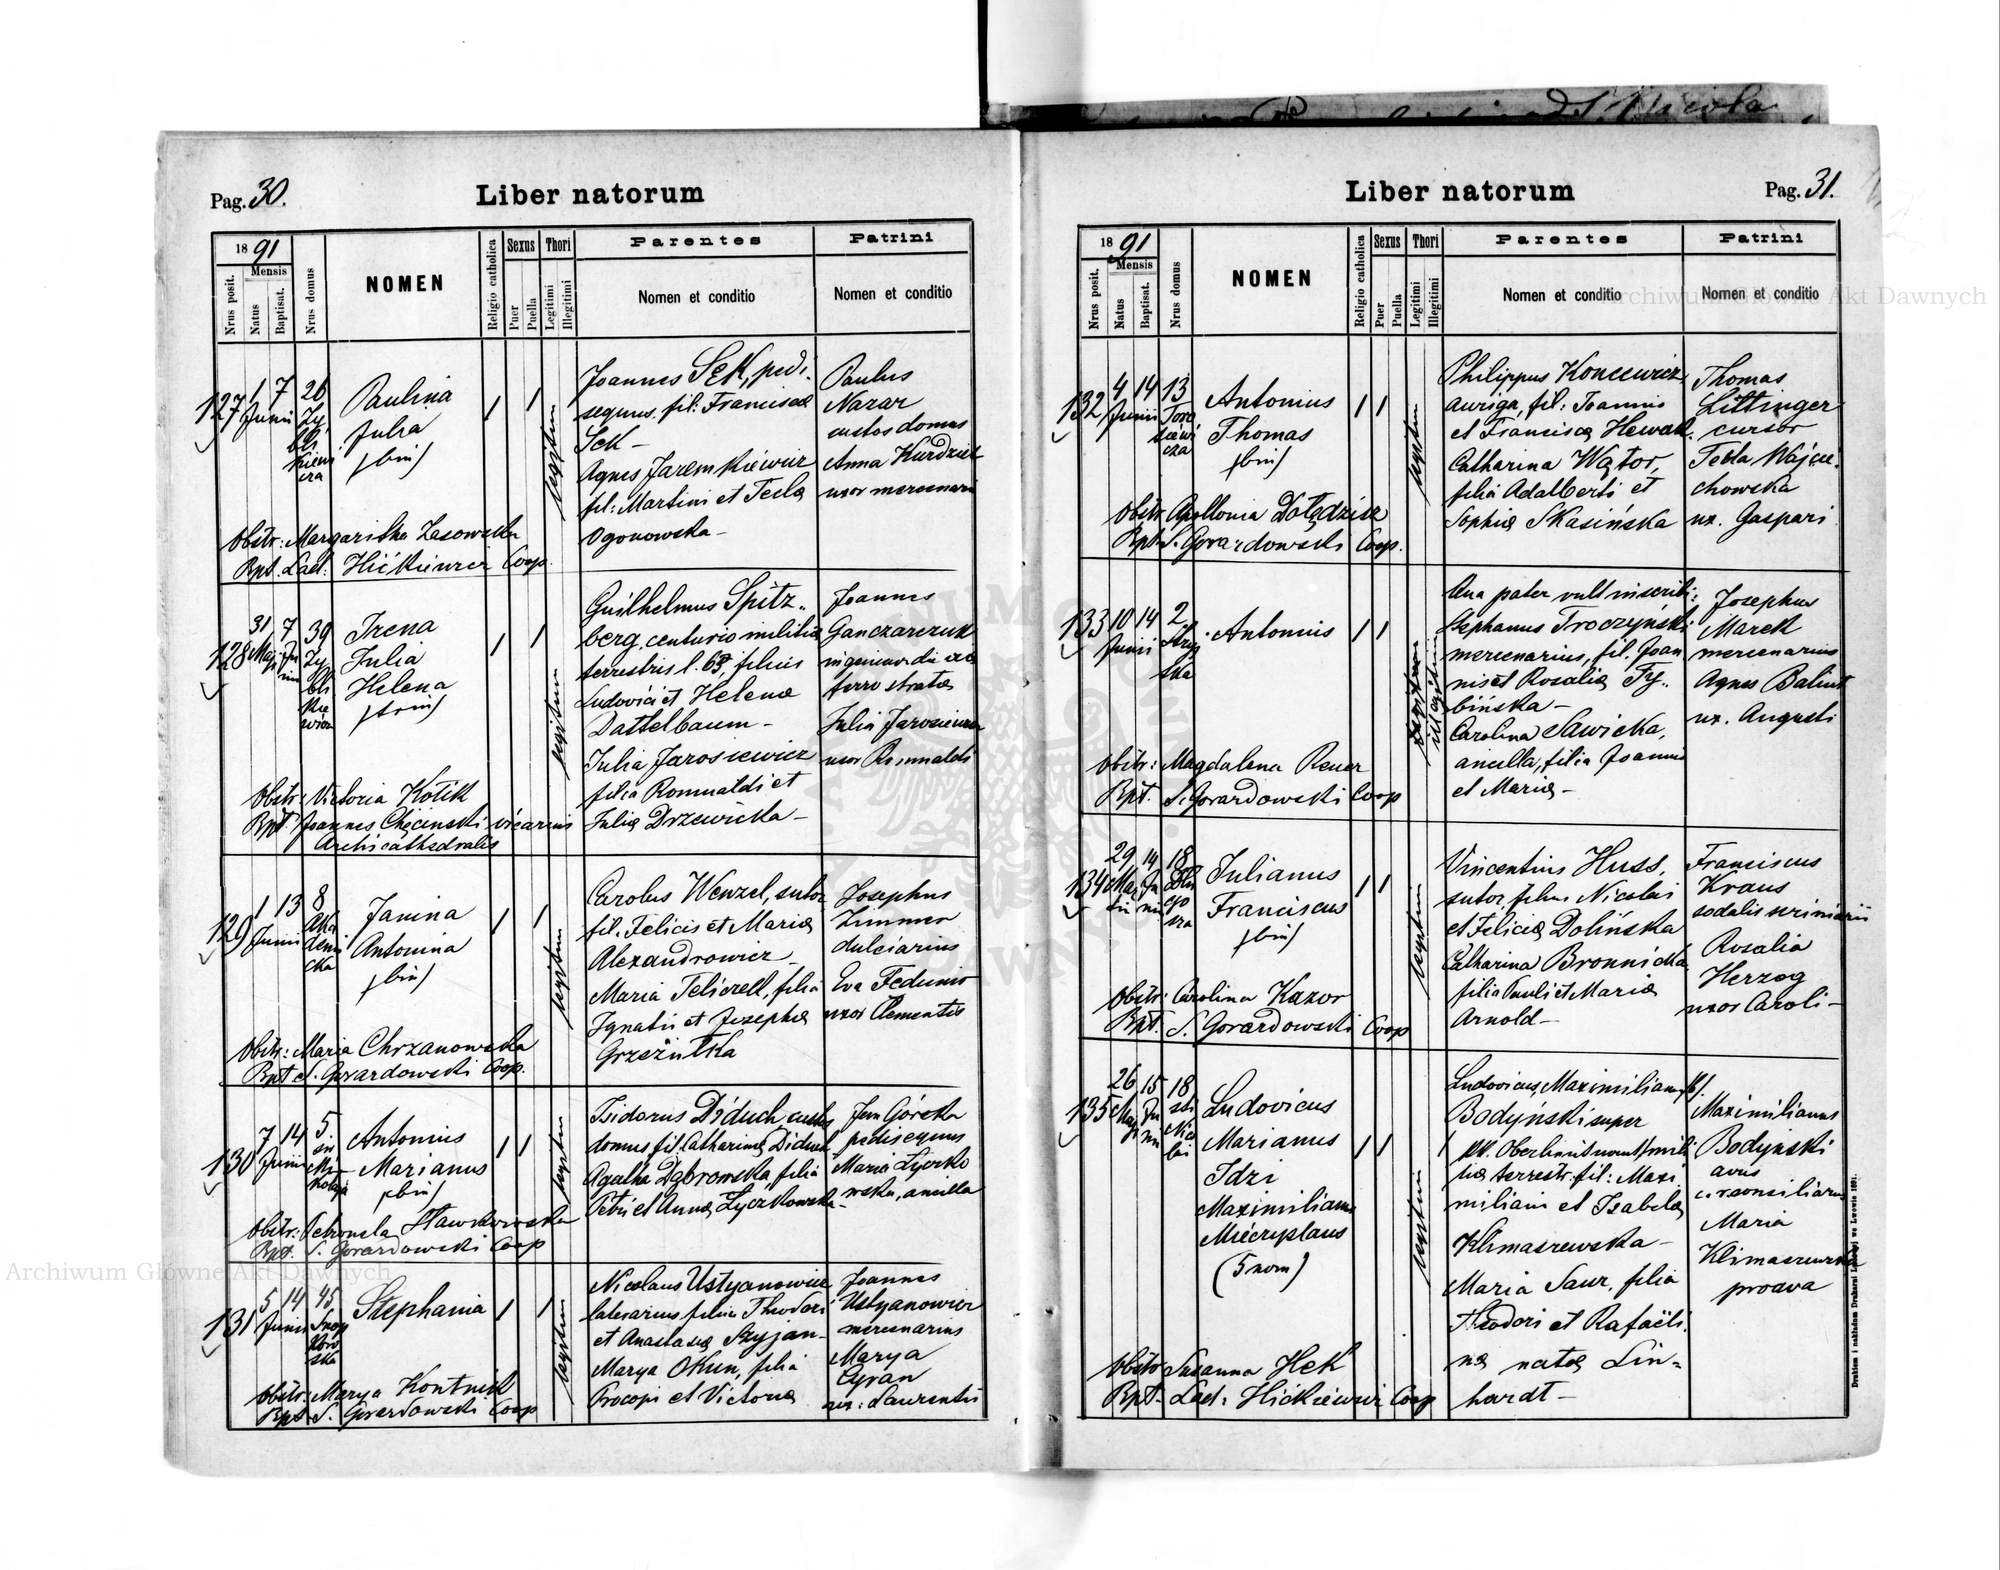 Pag. 30.
Liber natorum
1891
Mensis
Nrus posit.
Natus
Baptisat.
Nrus domus
NOMEN
Religio catholica
Sexus
Puer
Puella
Thori
Legitimi
Illegitimi
Parentes
Nomen et conditio
Patrini
Nomen et conditio
127
1 7 26
Junii
Paulina
Julia
(bin)
legitimi
Joannes Sęk, pedi-
sequus, fil: Francisca
Sęk –
Agnes Jaremkiewicz
fil: Martini et Tecla
Ogonowska –
Paulus
Nazar
custos domus
Anna Kurdziel
uxor mercenarii
Obstr: Margaritha Zasowska
Bpt. Lad: Hićkiewicz Coop.
128
31 7 39
Irena
Julia
Helena
(trin)
Guilhelmus Spitz-
berg, centurio militiæ
terrestris l. 63, filius
Ludovici et Helena
Dattelbaum –
Julia Jarosiewicz
filia Romualdi et
Julia Drzewicka –
Joannes
Ganczarczuk
Julia Jarosiewicz
uxor Romualdi
Obstr: Victoria Kotik
Bpt Joannes Chęcinski vicarius
Archicathedralis
129
1 13 8
Junii
Aka
demi
cka
Janina
Antonina
(bin)
Carolus Wenzel, sutor
fil. Felicis et Maria
Alexandrowicz –
Maria Teliczek, filia
Ignatii et Josepha
Grzeżulka
Josephus
Zimmer
dulciarius
Eva Fedunio
uxor Clementis
Obstr: Maria Chrzanowska
Bpt S. Gorardowski Coop.
130
7 14 5
Junii
Antonius
Marianus
(bin)
Isidorus Diduch, custos
domus fil. Catharina Diduch
Agatha Dąbrowska, filia
Petri et Anna Łyczkowska –
Jan Górska
pedisequus
Maria Łycz­ko
wska, ancilla
Obstr: Petronela Sławkowska
Bpt. S. Gorardowski Coop
131
5 14 45
Junii
Stephania
Nicolaus Ustyanowicz
laterarius filius Theodori
et Anastasia Szyjan –
Marya Okun, filia
Procopi et Victoria
Joannes
Ustyanowicz
mercenarius
Marya
Cyran
ux: Laurentii
Obstr: Marya Kontnik
Bpt S. Gorardowski Coop
Liber natorum
Pag. 31.
1891
Mensis
Nrus posit.
Natus
Baptisat.
Nrus domus
NOMEN
Religio catholica
Sexus
Puer
Puella
Thori
Legitimi
Illegitimi
Parentes
Nomen et conditio
Patrini
Nomen et conditio
132
4 14 13
Junii
Antonius
Thomas
(bin)
Philippus Koncewicz
auriga, fil: Joannis
et Francisca Hewak.
Catharina Wątor,
filia Adalberti et
Sophia Skasińska
Thomas
Littinger
cursor
Tekla Wojcie-
chowska
ux. Gaspari
Obstr Apollonia Dołędzisz
Bpt. S. Gorardowski Coop.
133
10 14 2
Junii
Antonius
Qua pater vult inscribi:
Stephanus Troczyński
mercenarius, fil. Joan
nis et Rosalia Fy-
bińska –
Carolina Sawicka,
ancilla, filia Joannis
et Maria –
Josephus
Marek
mercenarius
Agnes Balint
ux. Augusti
Obstr: Magdalena Rener
Bpt. S. Gorardowski Coop
134
29 14 18
Julianus
Franciscus
(bin)
Vincentius Huss,
sutor, filius Nicolai
et Felicia Dolińska
Catharina Bronnicka
filia Pauli et Maria
Arnold –
Franciscus
Kraus
sodalis scriniarii
Rosalia
Herzog
uxor Caroli –
Obstr: Carolina Kazor
Bpt. S. Gorardowski Coop
135
26 15 18
Ludovicus
Marianus
Idzi
Maximilianus
Miecryslaus
(5 nom)
Ludovicus, Maximilianus (bi).
Bodyński super
kk. Oberlieutenant mili
tiæ terrestr. fil: Maxi
miliani et Isabela
Klimaszewska –
Maria Saur, filia
Theodori et Rafaëli-
na nata Lin-
hardt –
Maximilianus
Bodyński
avus
Maria
Klimaszewska
proava
Obstr Susanna Hek
Bpt. Lad: Hićkiewicz Coop
Drukiem i nakładem Drukarni Ludowej we Lwowie 1891.
Archiwum Główne Akt Dawnych
Archiwum Główne Akt Dawnych